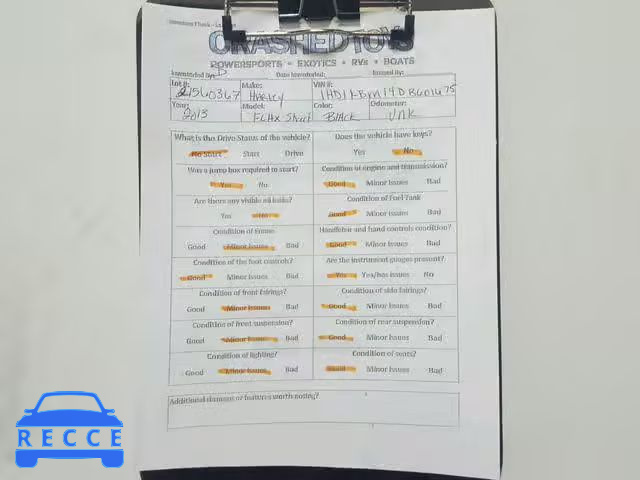 CRASHEDTOYS
POWERSPORTS • EXOTICS • RVs • BOATS
Inventoried By: B Date Inventoried: Keyed By:
Lot #: Make: VIN #:
21560367 Harley
Year: Model: Color: Odometer:
2013 FLHX Street BLACK UNK
What is the Drive Status of the vehicle? Does the vehicle have keys?
No Start Start Drive Yes No
Was a jump box required to start? Condition of engine and transmission?
Yes No Good Minor Issues Bad
Are there any visible oil leaks? Condition of Fuel Tank
Yes No Good Minor Issues Bad
Condition of Frame Handlebar and hand controls condition?
Good Minor Issues Bad Good Minor Issues Bad
Condition of the foot controls? Are the instrument gauges present?
Good Minor Issues Bad Yes Yes/has issues No
Condition of front fairings? Condition of side fairings?
Good Minor Issues Bad Good Minor Issues Bad
Condition of front suspension? Condition of rear suspension?
Good Minor Issues Bad Good Minor Issues Bad
Condition of lighting? Condition of seats?
Good Minor Issues Bad Good Minor Issues Bad
Additional damages or features worth noting?
RECCE